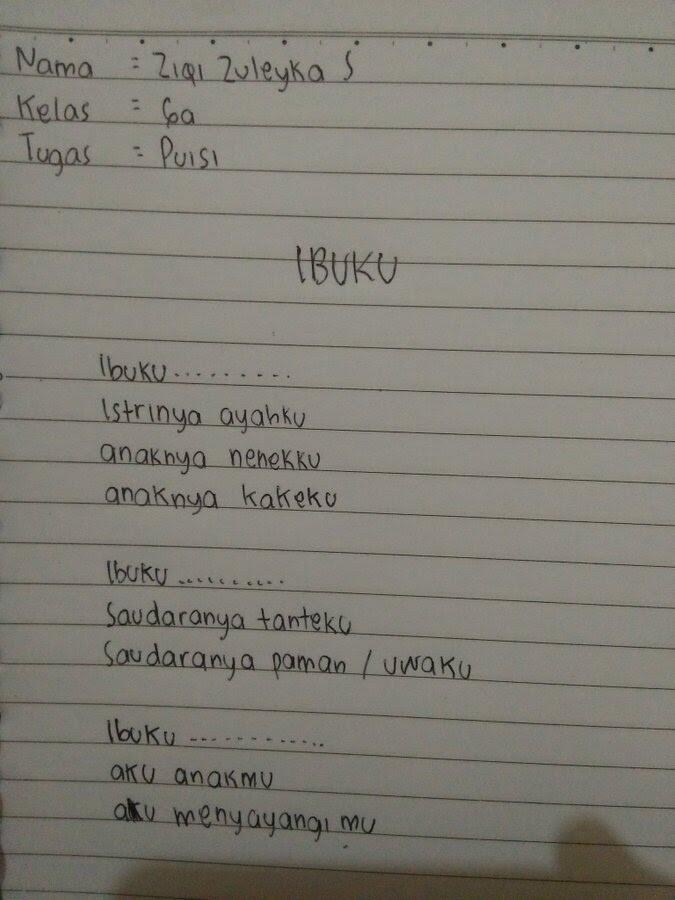 Nama = Ziqi Zuleyka S
Kelas = 6a
Tugas = Puisi
IBUKU
Ibuku.........
Istrinya ayahku
anaknya nenekku
anaknya kakeku
Ibuku..........
Saudaranya tanteku
Saudaranya paman / uwaku
Ibuku............
aku anakmu
aku menyayangi mu